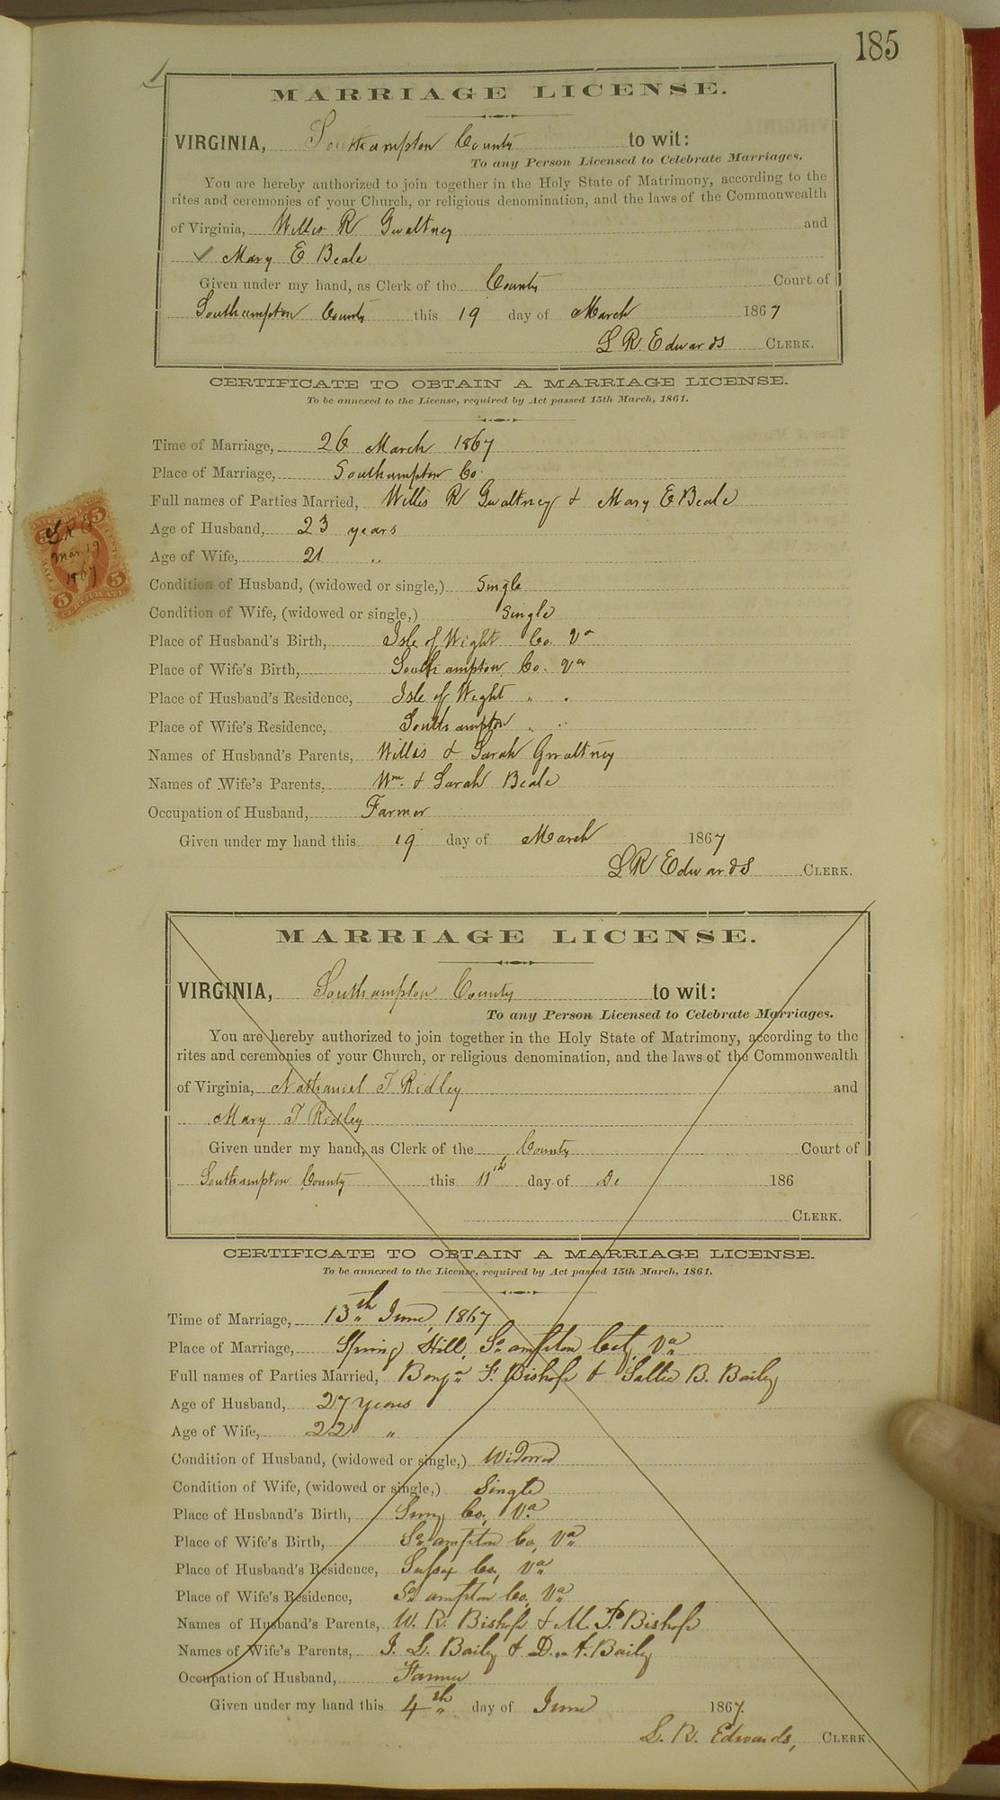 185
MARRIAGE LICENSE.
VIRGINIA, Southampton County to wit:
To any Person Licensed to Celebrate Marriages.
You are hereby authorized to join together in the Holy State of Matrimony, according to the
rites and ceremonies of your Church, or religious denomination, and the laws of the Commonwealth
of Virginia, Willis R Gwaltney and
✓ Mary E Beale
Given under my hand, as Clerk of the County Court of
Southampton County this 19 day of March 1867
L R Edwards CLERK.
CERTIFICATE TO OBTAIN A MARRIAGE LICENSE.
To be annexed to the License, required by Act passed 15th March, 1861.
Time of Marriage, 26 March 1867
Place of Marriage, Southampton Co.
Full names of Parties Married, Willis R Gwaltney & Mary E Beale
Age of Husband, 23 years
Age of Wife, 21 "
Condition of Husband, (widowed or single,) Single
Condition of Wife, (widowed or single,) Single
Place of Husband's Birth, Isle of Wight Co. Va
Place of Wife's Birth, Southampton Co. Va
Place of Husband's Residence, Isle of Wight " "
Place of Wife's Residence, Southampton " "
Names of Husband's Parents, Willis & Sarah Gwaltney
Names of Wife's Parents, Wm. & Sarah Beale
Occupation of Husband, Farmer
Given under my hand this 19 day of March 1867
L R Edwards CLERK.
5 5
Mar 19
1867
5 5
CERTIFICATE
MARRIAGE LICENSE.
VIRGINIA, Southampton County to wit:
To any Person Licensed to Celebrate Marriages.
You are hereby authorized to join together in the Holy State of Matrimony, according to the
rites and ceremonies of your Church, or religious denomination, and the laws of the Commonwealth
of Virginia, Nathaniel T Ridley and
Mary T Ridley
Given under my hand, as Clerk of the County Court of
Southampton County this 11th day of De 186
CLERK.
CERTIFICATE TO OBTAIN A MARRIAGE LICENSE.
To be annexed to the License, required by Act passed 15th March, 1861.
Time of Marriage, 13th June, 1867
Place of Marriage, Spring Hill, So.ampton Va
Full names of Parties Married, Benj. F. Bishop & Sallie B. Bailey
Age of Husband, 27 years
Age of Wife, 22 "
Condition of Husband, (widowed or single,) Widowed
Condition of Wife, (widowed or single,) Single
Place of Husband's Birth, Surry Co, Va
Place of Wife's Birth, So.ampton Co, Va
Place of Husband's Residence, Sussex Co, Va
Place of Wife's Residence, So.ampton Co, Va
Names of Husband's Parents, W. R. Bishop & M. P. Bishop
Names of Wife's Parents, J. L. Bailey & Bailey
Occupation of Husband, Farmer
Given under my hand this 4th day of June 1867.
L. R. Edwards, CLERK.